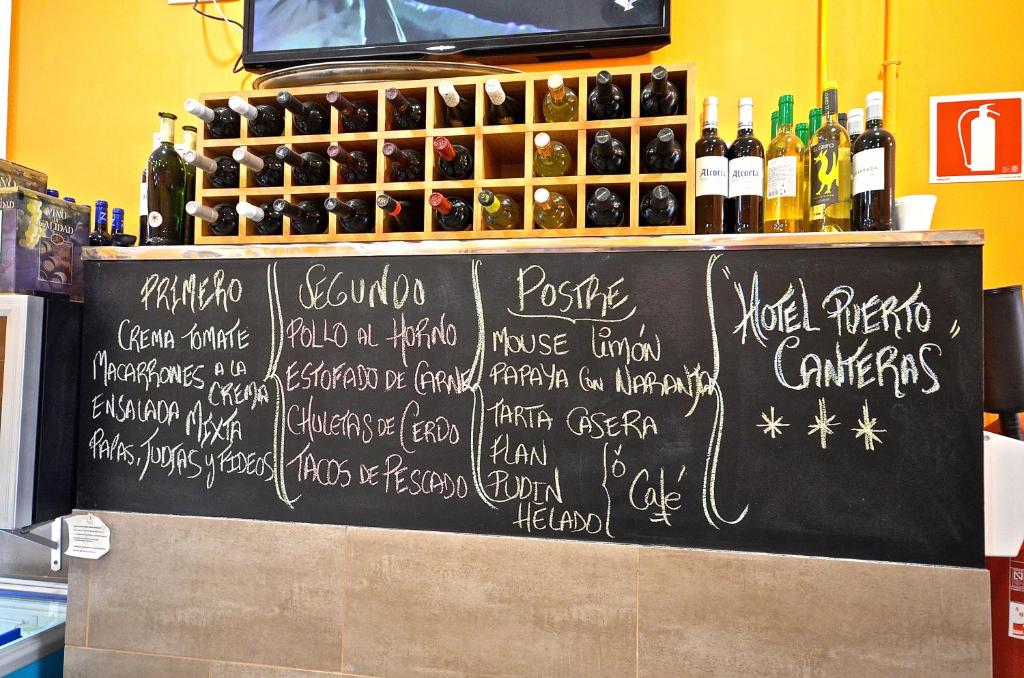 PRIMERO
CREMA TOMATE
MACARRONES A LA
CREMA
ENSALADA MIXTA
PAPAS, JUDIAS Y FIDEOS
SEGUNDO
POLLO AL HORNO
ESTOFADO DE CARNE
CHULETAS DE CERDO
TACOS DE PESCADO
POSTRE
MOUSE limón
PAPAYA CON NARANJA
TARTA CASERA
FLAN
PUDIN
HELADO
ó
Café
"HOTEL PUERTO
CANTERAS"
* * *
Alcorta
Alcorta
EL GRIFO
VINO
CALIDAD